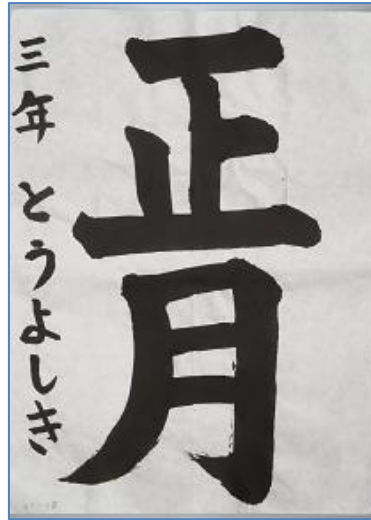 正月
三年 とうよしき